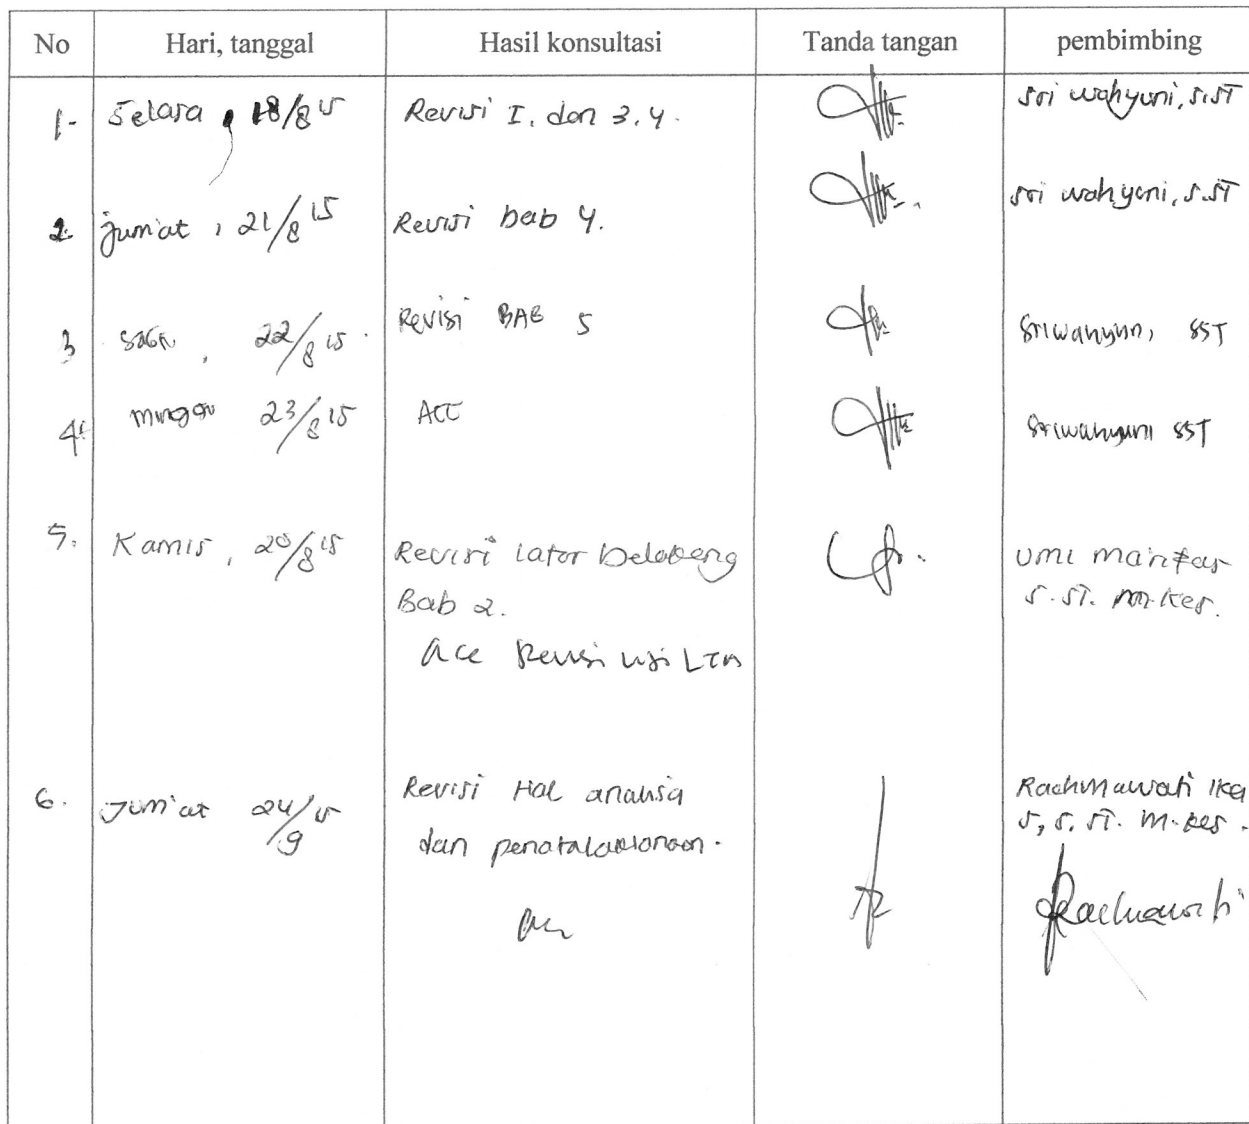 No Hari, tanggal Hasil konsultasi Tanda tangan pembimbing
1- Selasa, 18/8 15 Revisi I, dan 3,4. Sri wahyuni, S.ST
2. jum'at, 21/8 15 Revisi bab 4. Sri wahyuni, S.ST
3 Sabtu, 22/8 15. Revisi BAB 5 Sriwahyuni, SST
4. minggu 23/8 15 ACC Sriwahyuni SST
5. Kamis, 20/8 15 Revisi latar belakang Umi
Bab 2. S.ST. M.Kes.
acc Revisi LTA
6. Jum'at 24/9 15 Revisi Hal analisa Rachmawati Ika
dan penatalaksanaan. S, S.ST. M.Kes.
Rachmawati